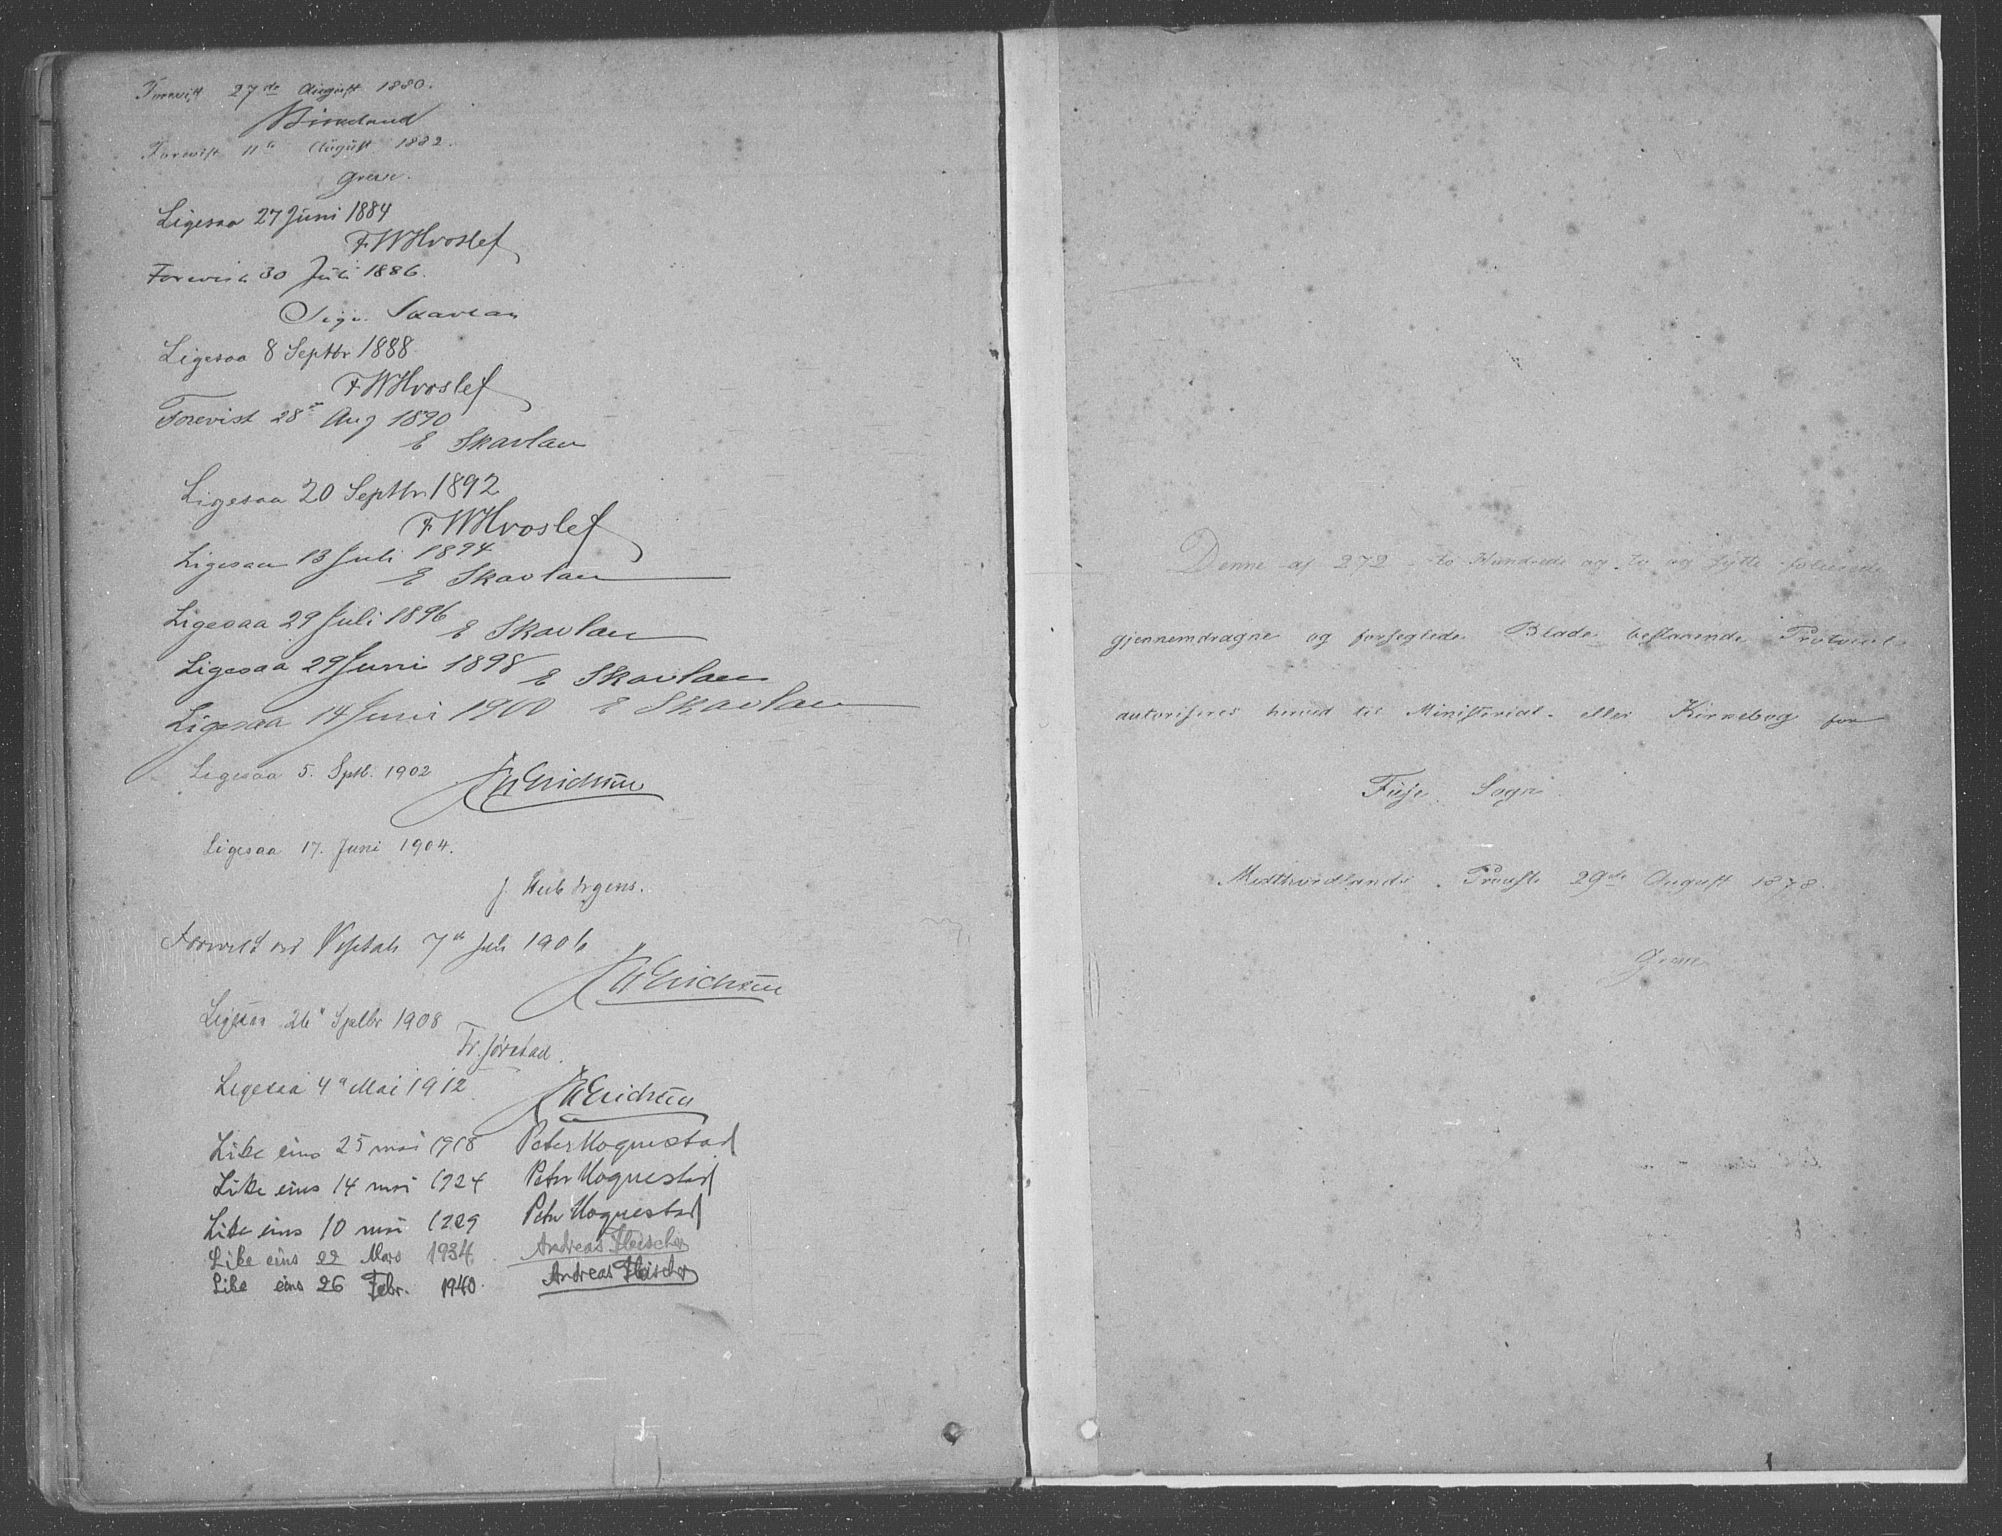 Forevist 27de August 1880.
Forevist 11te August 1882.
Grove.
Ligesaa 27 Juni 1884
F. W Hvoslef
Forevist 30 Juli 1886.
Sign. Skavlan
Ligesaa 8 Septbr 1888.
F. W Hvoslef
Forevist 28de Aug 1890
E Skavlan
Ligesaa 20 Septbr 1892
F. W Hvoslef
Ligesaa 13 Juli 1894
E Skavlan
Ligesaa 29 Juli 1896 E Skavlan
Ligesaa 29 Juni 1898 E Skavlan
Ligesaa 14 Juni 1900 E Skavlan
Ligesaa 5. Sptb. 1902 Erichsen
Ligesaa 17. Juni 1904.
J. Irgens.
Forevist ved 7de Juli 1906
Erichsen
Ligesaa 26 Septbr 1908
Fr. Jørstad.
Ligesaa 4de Mai 1912 Erichsen
Like eins 25 mai 1918 Peter Hognestad
Like eins 14 mai 1924 Peter Hognestad
Like eins 10 mai 1929 Peter Hognestad
Like eins 22 Mars 1934 Andreas Fleischer
Like eins 26 Febr. 1940. Andreas Fleischer
Denne af 272 to Hundrede og to og sytti folierede
gjennemdragne og forseglede Blade bestaaende Protocol
autoriseres herved til Ministerial- eller Kirkebog for
Fuse Sogn.
Midthordlands Provsti 29de August 1878.
Grove